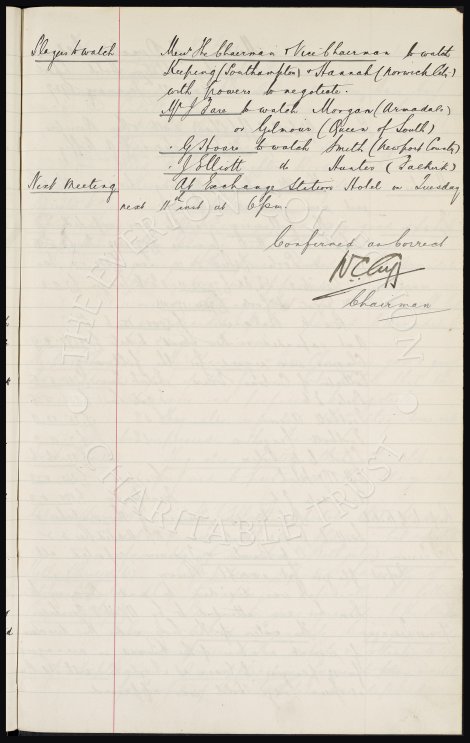 Players to watch Messrs The Chairman & Vice Chairman to watch
Keeping (Southampton) & Hannah (Norwich City)
with powers to negotiate.
Mr J Fare to watch Morgan (Armadale)
or Gilmour (Queen of South)
" G Hoare to watch Smith (Newport County)
" J Elliott do Hunter (Falkirk)
Next Meeting At Exchange Station Hotel on Tuesday
next 11th inst at 6pm.
Confirmed as Correct
W.C. Cuff
Chairman
THE EVERTON COLLECTION
CHARITABLE TRUST